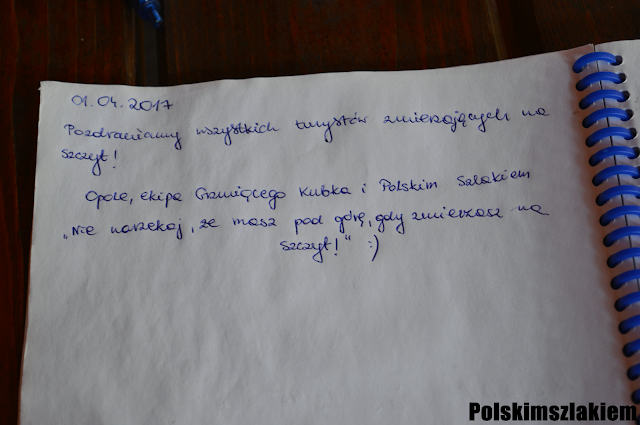 01.04.2017
Pozdrawiamy wszystkich turystów zmierzających na
szczyt!
Opole, ekipa Grzmiącego Kubka i Polskim Szlakiem
„Nie narzekaj, że masz pod górę, gdy zmierzasz na
szczyt!“ :)
Polskimszlakiem